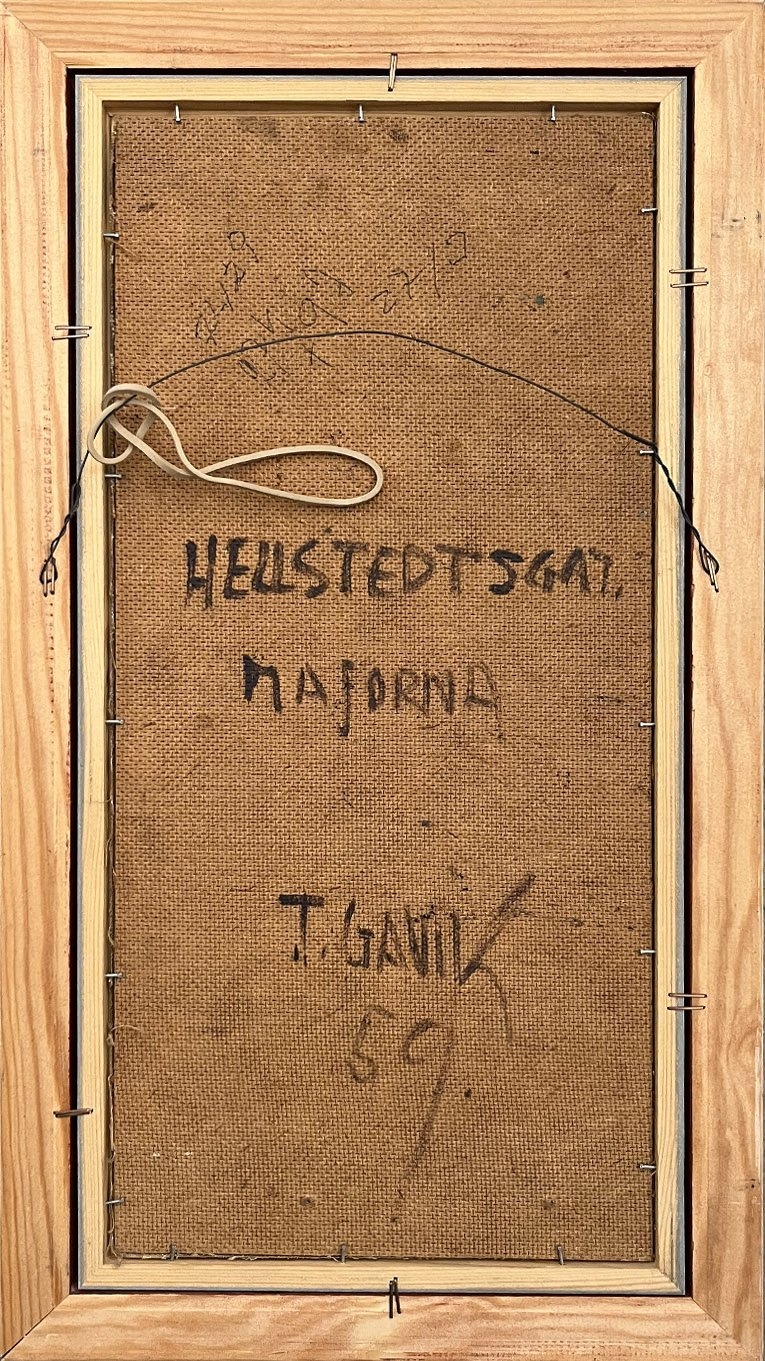 27/9
HELLSTEDTSGAT.
MAJORNA
T. GAVIK
59.